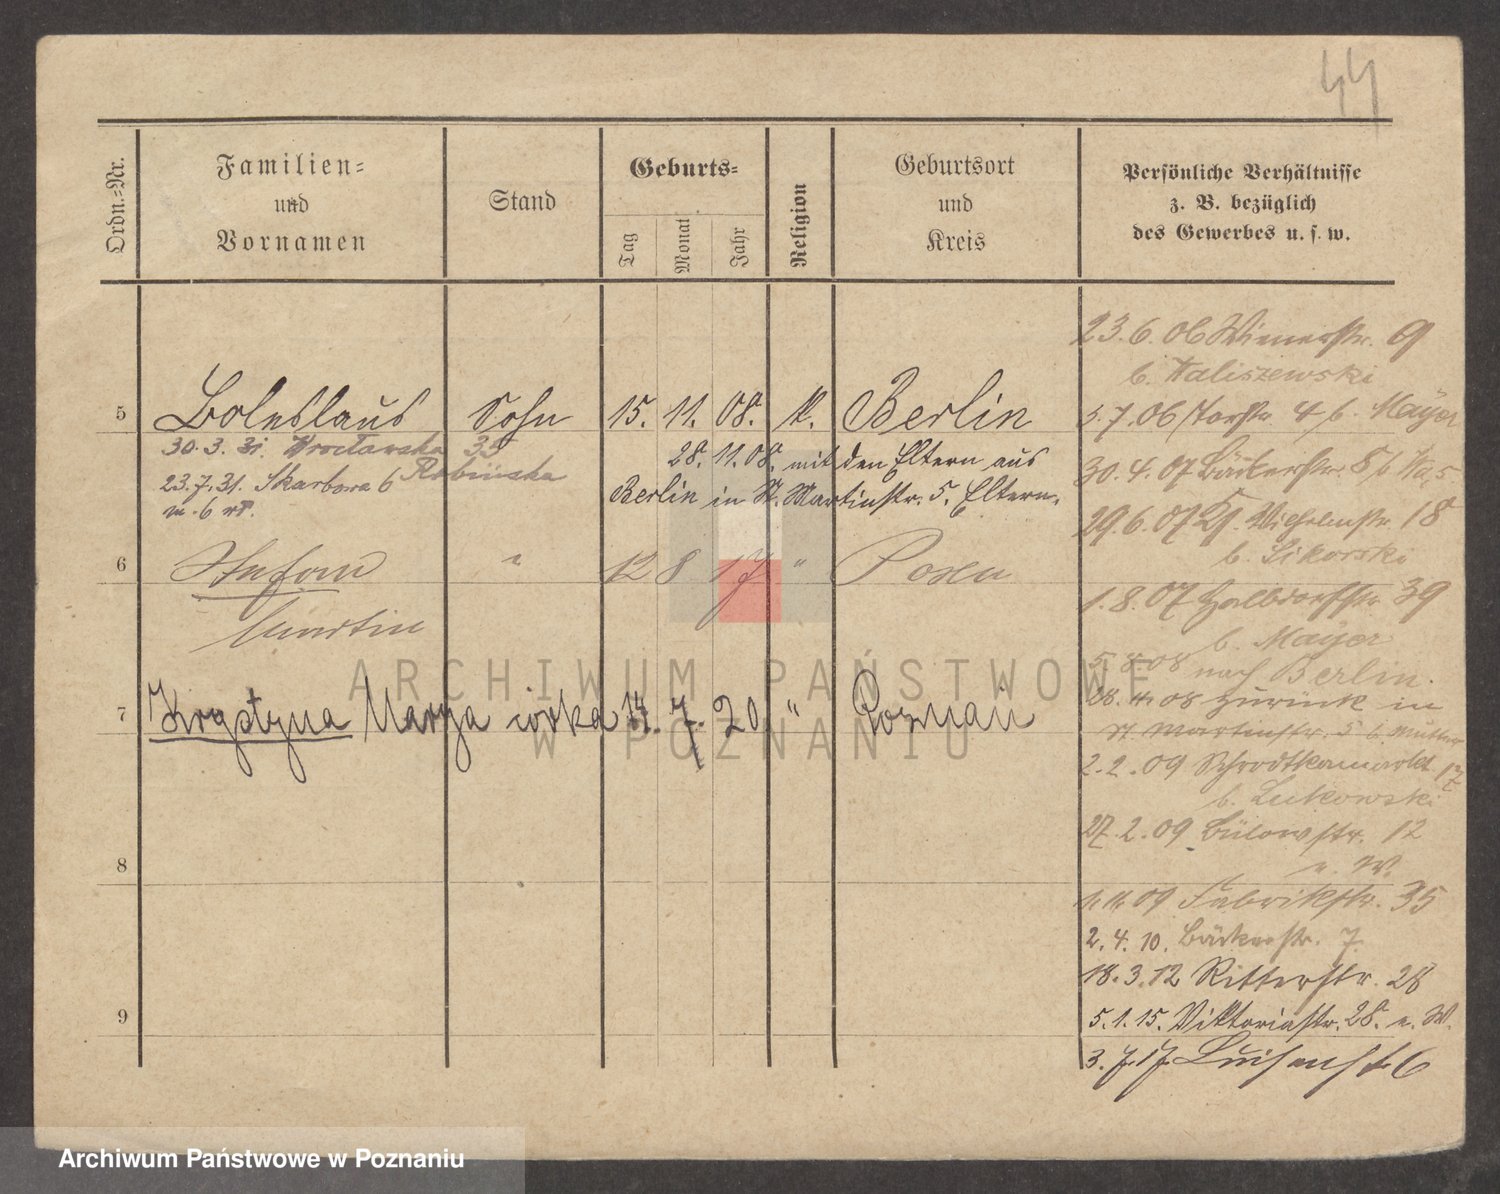 44
Ordn.-Nr.
Familien-
und
Vornamen
Stand
Geburts-
Tag
Monat
Jahr
Religion
Geburtsort
und
Kreis
Persönliche Verhältnisse
z. B. bezüglich
des Gewerbes u. s. w.
5 Boleslaus Sohn 15. 11. 08. k. Berlin
30.3.31. Wrocławska 33
23.7.31. Skarbowa 6
m. 6
28. 11. 08. mit den Eltern aus
Berlin in St. Martinstr. 5. Eltern.
6 Stefan " 12 8 17 " Posen
Martin
7 Krystyna Marja córka 14. 7. 20 " Poznań
8
9
23.6.06 Wienerstr. 9
b. Kaliszewski
5.7.06 Torstr. 4 b. Mayer
30.4.07 Bäckerstr.
29.6.07 Kl. Wilhelmstr. 18
b. Sikorski
1.8.07 Halbdorfstr 39
b. Mayer
5.8.08 nach Berlin.
28.11.08 zurück in
St Martinstr. 5 b. Mutter
2.2.09 Schrodkamarkt 17
b. Lutkowski
27.2.09 Bülowstr. 12
e. W.
1.11.09 Fabrikstr. 35
2.4.10. Bäckerstr. 7.
18.3.12 Ritterstr. 28
5.1.15. Viktoriastr. 28. e. W.
3.7.17 Luisenst. 6
ARCHIWUM PAŃSTWOWE
W POZNANIU
Archiwum Państwowe w Poznaniu